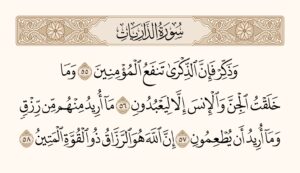 سُورَةُ الذَّارِيَاتِ
وَذَكِّرْ فَإِنَّ ٱلذِّكْرَىٰ تَنفَعُ ٱلْمُؤْمِنِينَ ٥٥ وَمَا
خَلَقْتُ ٱلْجِنَّ وَٱلْإِنسَ إِلَّا لِيَعْبُدُونِ ٥٦ مَآ أُرِيدُ مِنْهُم مِّن رِّزْقٍ
وَمَآ أُرِيدُ أَن يُطْعِمُونِ ٥٧ إِنَّ ٱللَّهَ هُوَ ٱلرَّزَّاقُ ذُو ٱلْقُوَّةِ ٱلْمَتِينُ ٥٨